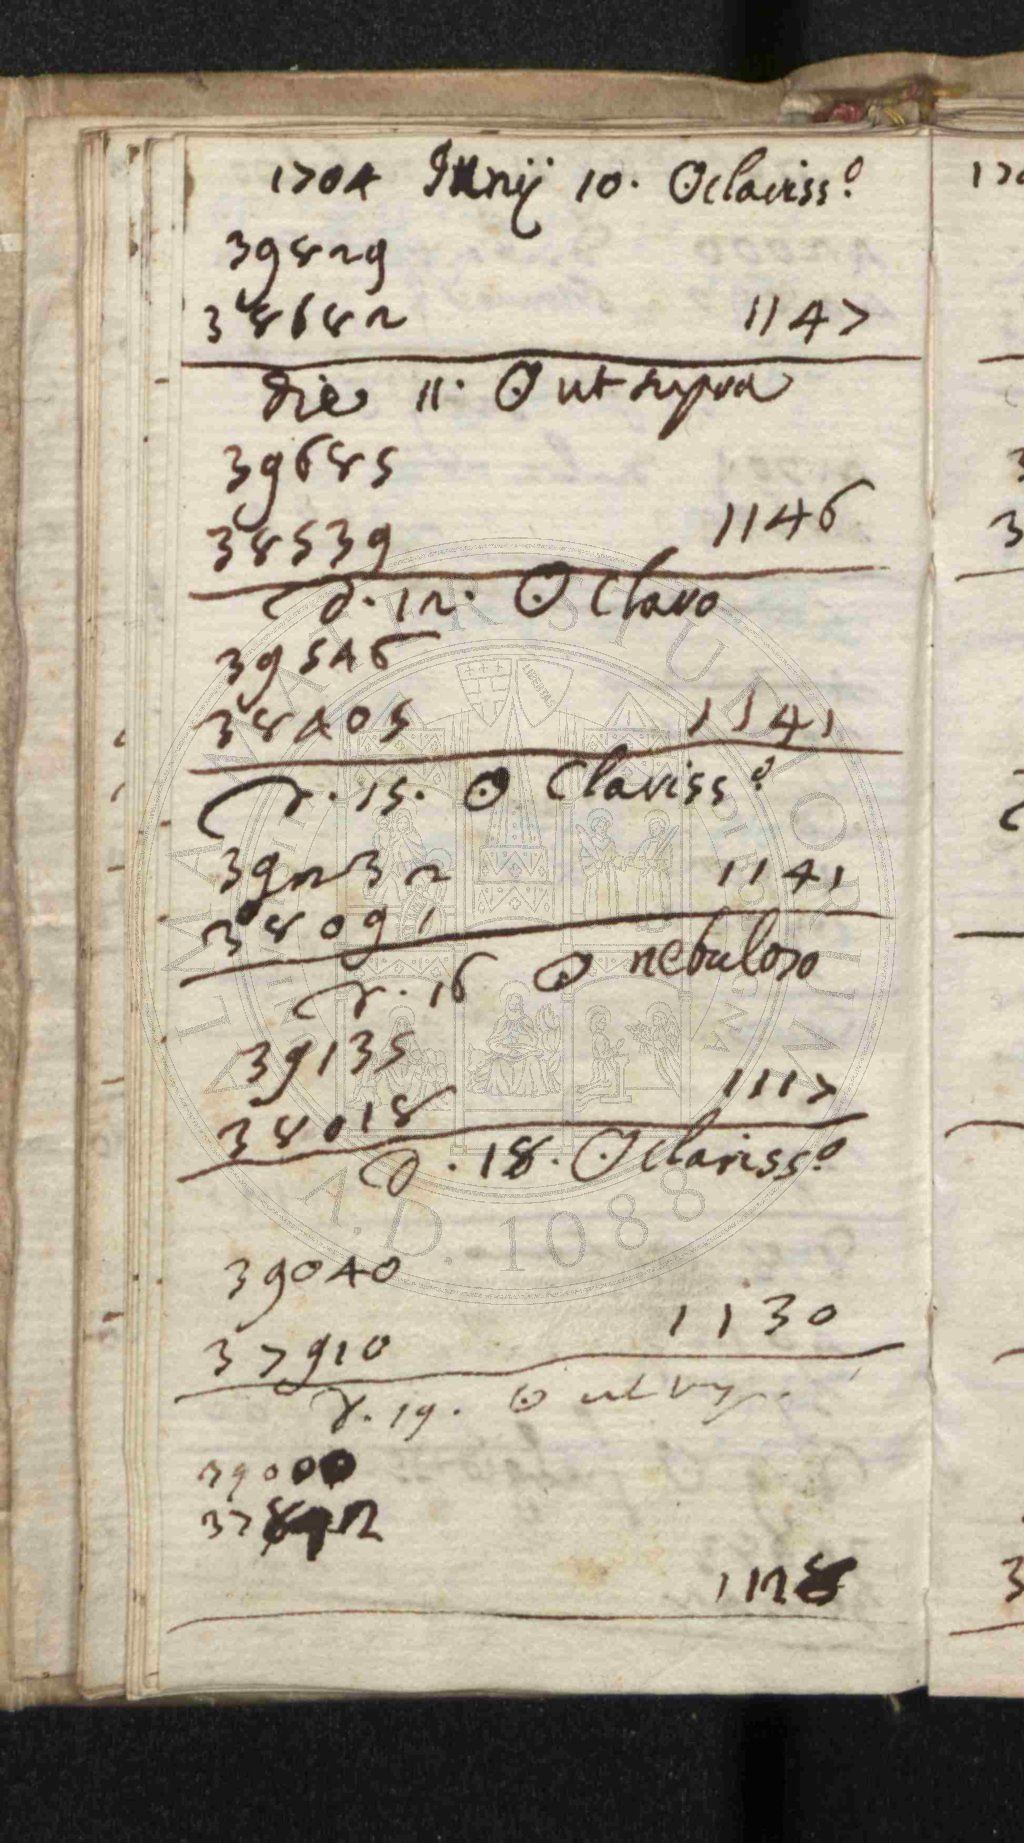 1704 Junij 10. ☉ claviss.º
39829
38682 1147
die 11. ☉ ut supra
39685
38539 1146
d. 12. ☉ claro
39546
38405 1141
d. 15. ☉ clariss.º
39232 1141
38091
d. 16 ☉ nebuloso
39135
38018 1117
d. 18. ☉ clariss.º
39040
37910 1130
d. 19. ☉ ut sup.
37892
1128
170
3
3
3
ALMA MATER STUDIORUM
A.D. 1088